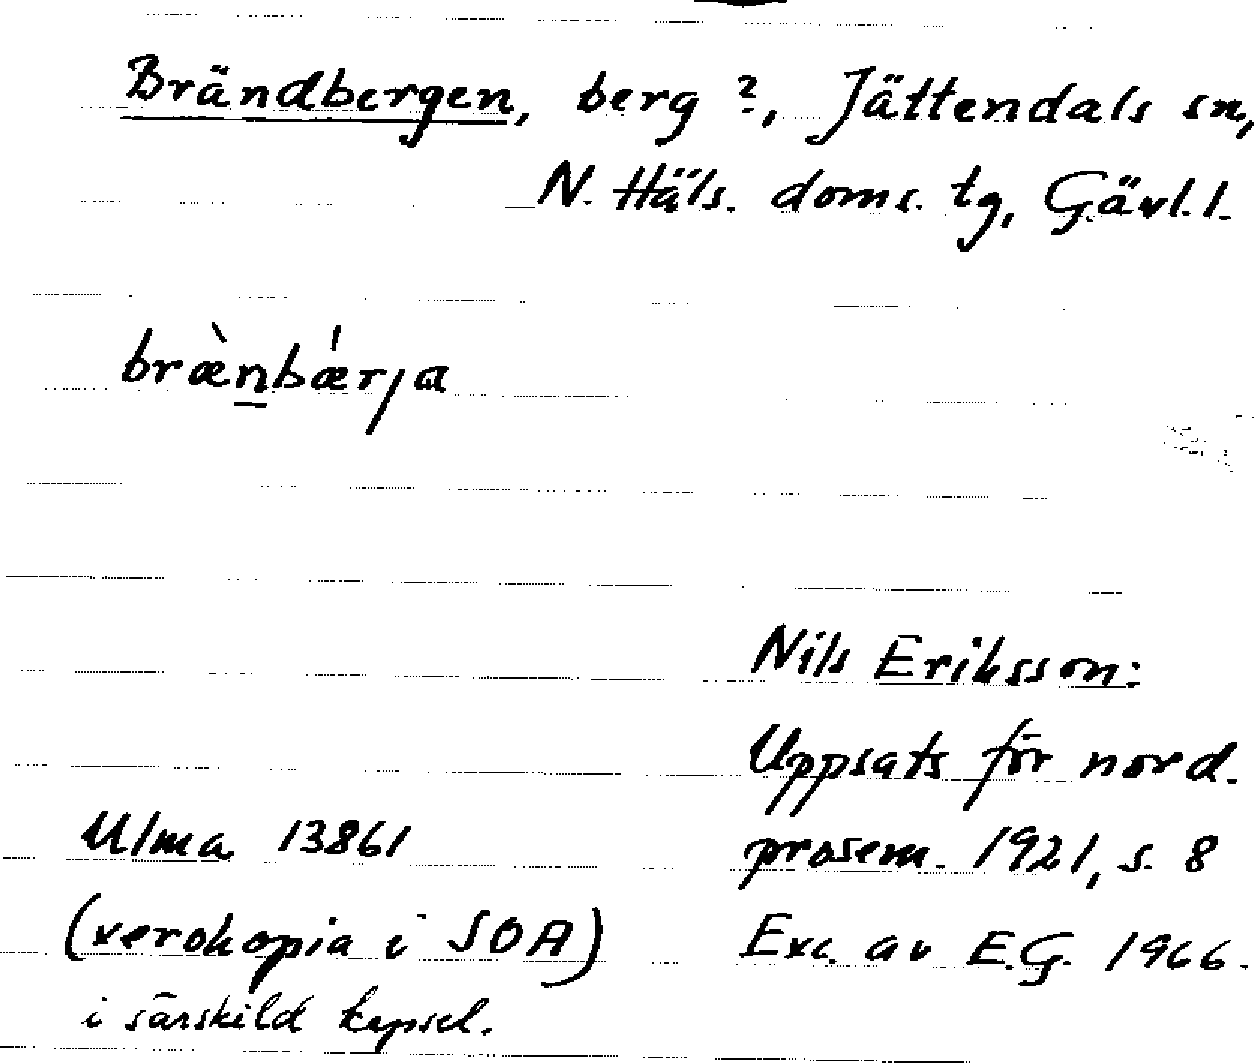 Brändbergen, berg ?, Jättendals sn,
N. Häls. doms. tg, Gävl. l.
bræ̀n̲bǽrja
Nils Eriksson:
Uppsats för nord.
prosem. 1921, s. 8
Exc. av E.G. 1966.
Ulma 13861
(xerokopia i SOA)
i särskild kapsel.